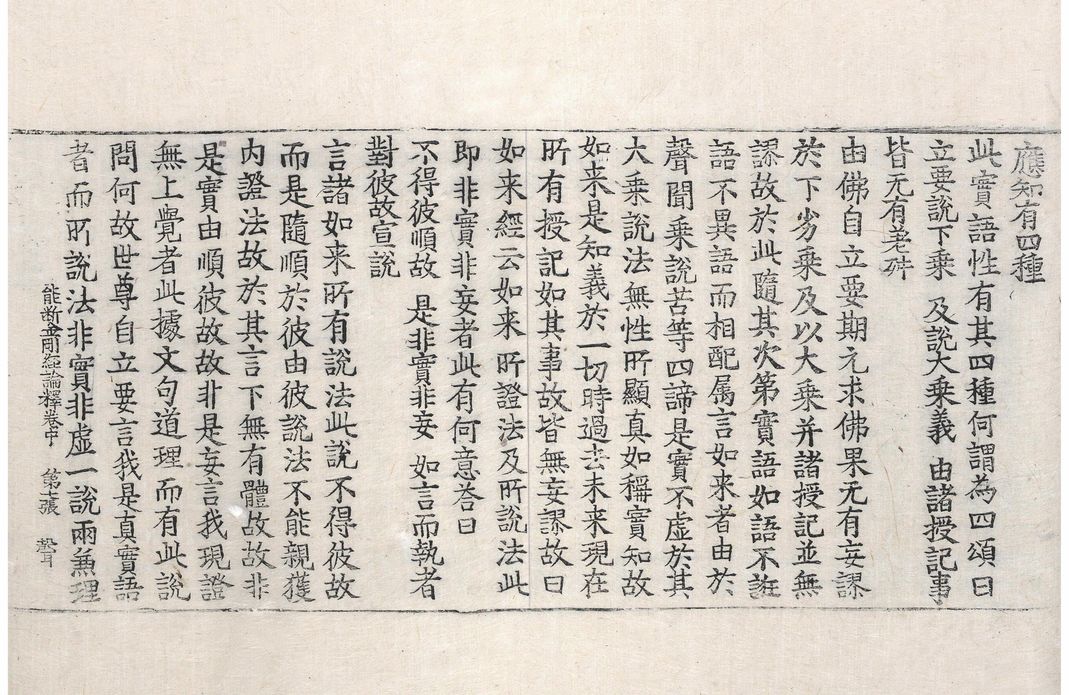 應知有四種
此實語性有其四種何謂為四頌曰
立要說下乘 及說大乘義 由諸授記事
皆无有差舛
由佛自立要期元求佛果无有妄謬
於下劣乘及以大乘并諸授記並無
謬故於此隨其次第實語如語不誑
語不異語而相配属言如来者由於
聲聞乘說苦等四諦是實不虛於其
大乘說法無性所顯真如稱實知故
如来是知義於一切時過去未来現在
所有授記如其事故皆無妄謬故曰
如来經云如来所證法及所說法此
即非實非妄者此有何意荅曰
不得彼順故 是非實非妄 如言而執者
對彼故宣說
言諸如来所有說法此說不得彼故
而是隨順於彼由彼說法不能親獲
内證法故於其言下無有體故故非
是實由順彼故故非是妄言我現證
無上覺者此據文句道理而有此說
問何故世尊自立要言我是真實語
者而所說法非實非虛一說兩兼理
能断金剛經論釋卷中 第七張